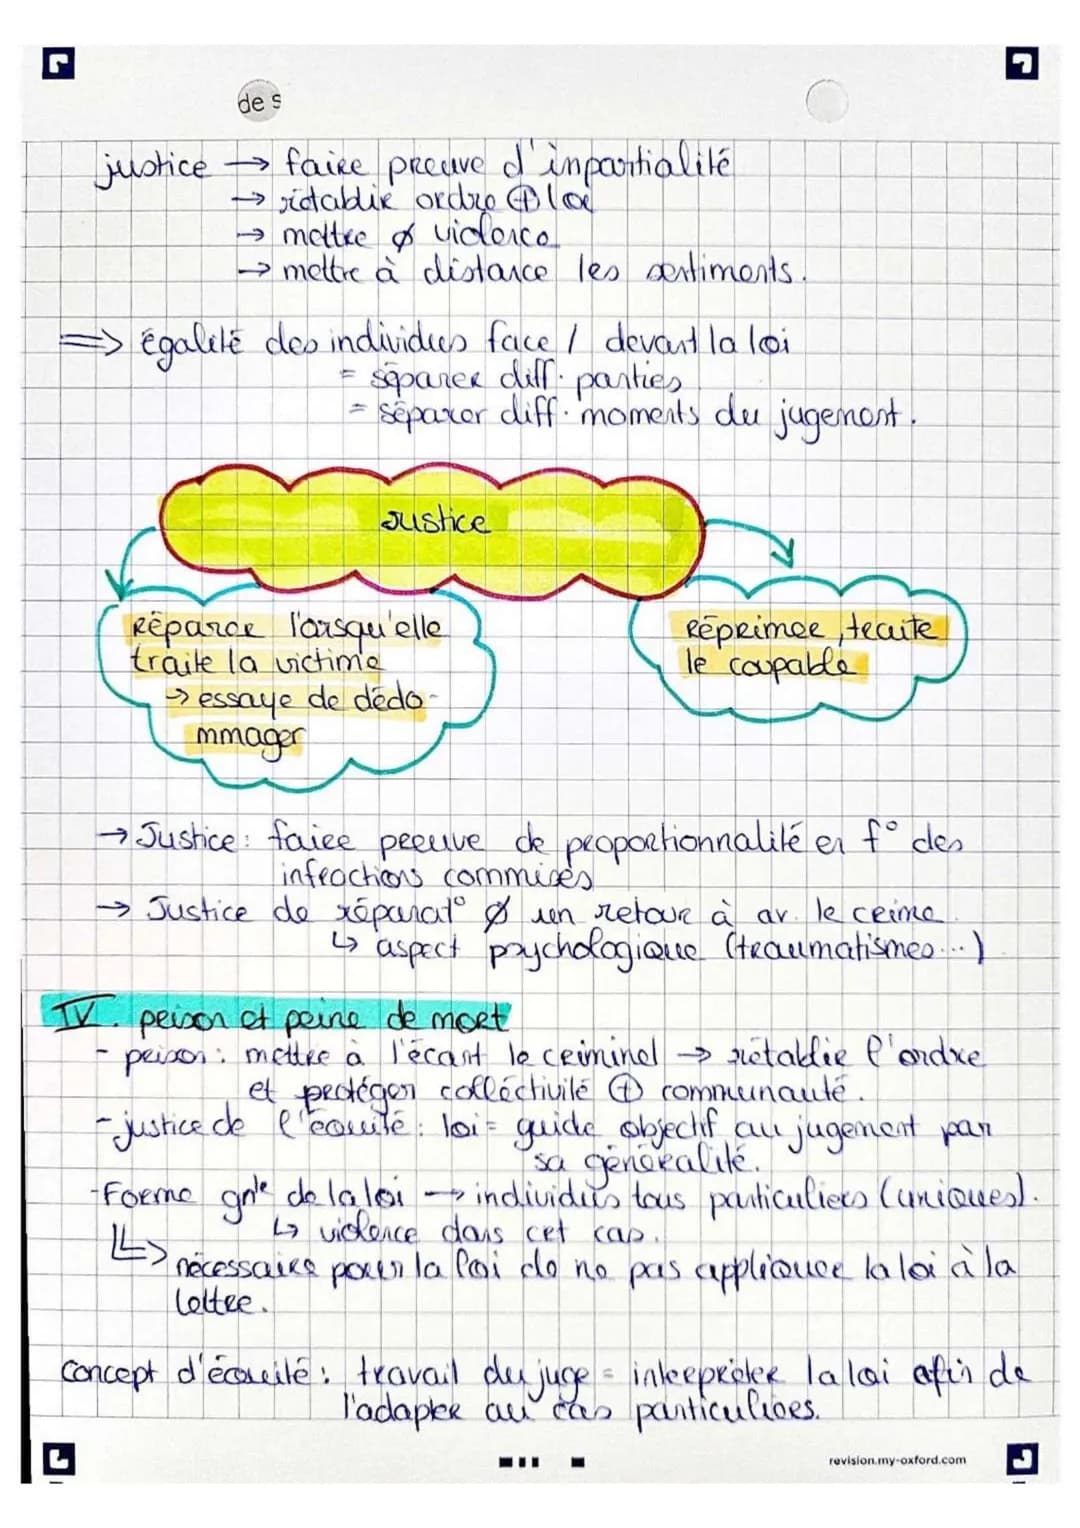 de s
justice → faire preuve d'impartialité
→ rétablir ordre ⊕ loi
→ mettre ∅ violence
→ mettre à distance les sentiments.
⇒ égalité des individus face / devant la loi
= séparer diff. parties
= séparer diff. moments du jugement.
Justice
Réparer lorsqu'elle
traite la victime
→ essaye de dédo-
mmager
Réprimer, traite
le coupable
→ Justice : faire preuve de proportionnalité en f° des
infractions commises
→ Justice de réparat° ∅ un retour à av. le crime.
↳ aspect psychologique (traumatismes...)
IV. prison et peine de mort
- prison : mettre à l'écart le criminel → rétablir l'ordre
et protéger colléctivité ⊕ communauté.
- justice de l'équité : loi = guide objectif au jugement par
sa généralité.
- Forme gnle de la loi → individus tous particuliers (uniques).
↳ violence dans cet cas.
⇒ nécessaire pour la loi de ne pas appliquer la loi à la
lettre.
concept d'équité : travail du juge = interpréter la loi afin de
l'adapter au cas particulières.
revision.my-oxford.com